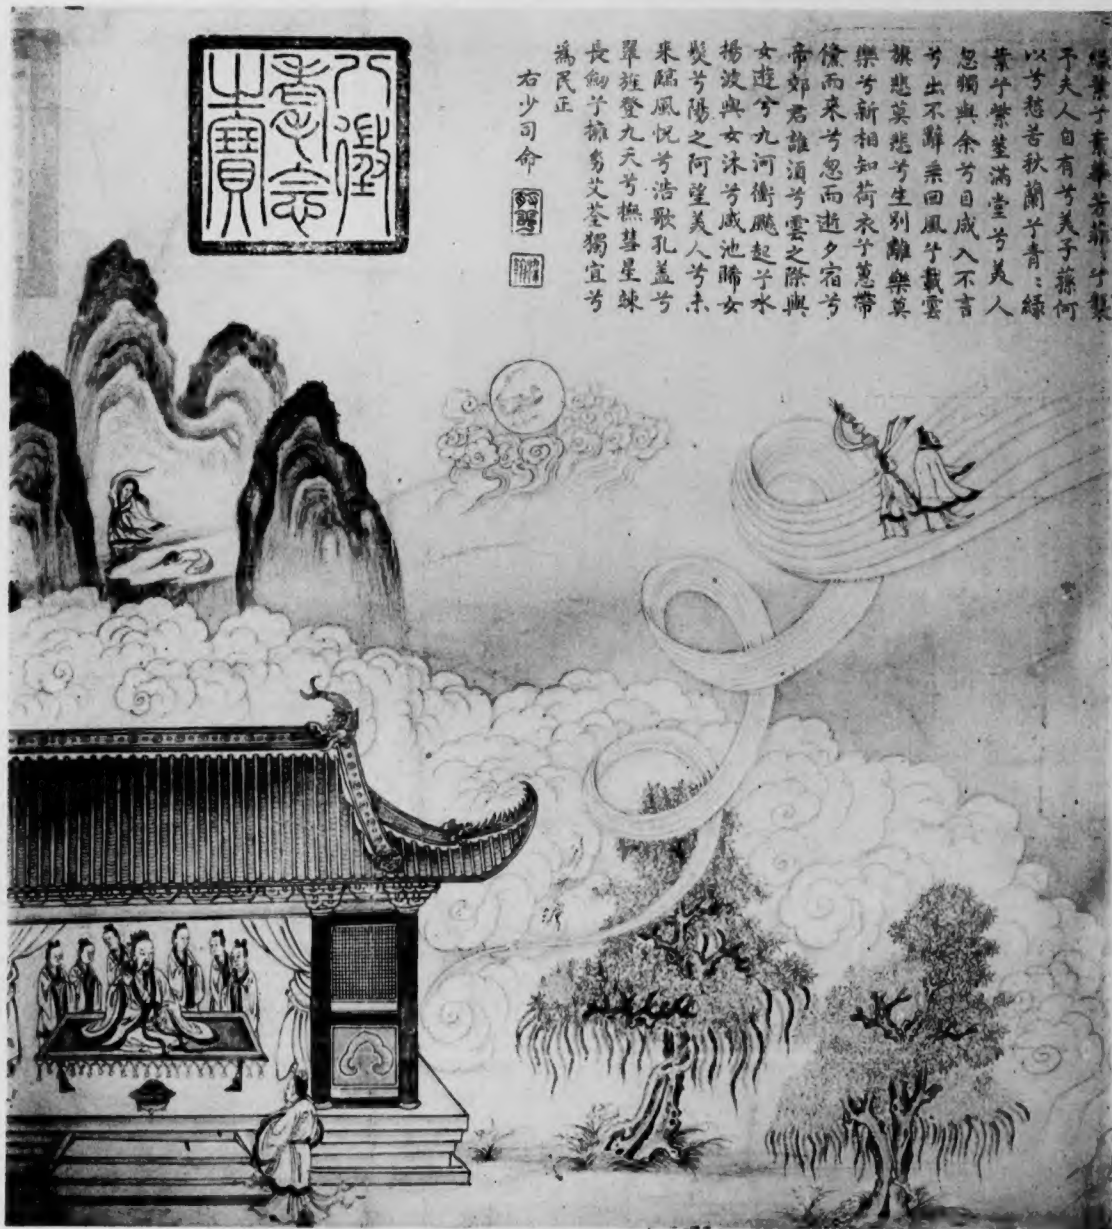 緑葉兮素華芳菲〻兮襲
予夫人自有兮美子蓀何
以兮愁苦秋蘭兮青〻緑
葉兮紫莖滿堂兮美人
忽獨與余兮目成入不言
兮出不辭乘回風兮載雲
旗悲莫悲兮生別離樂莫
樂兮新相知荷衣兮蕙帶
儵而來兮忽而逝夕宿兮
帝郊君誰須兮雲之際與
女遊兮九河衝飈起兮水
揚波與女沐兮咸池晞女
髮兮陽之阿望美人兮未
來臨風怳兮浩歌孔盖兮
翠旌登九天兮撫彗星竦
長劒兮擁㓜艾荃獨宜兮
為民正
右少司命
八徵
耄念
之寶